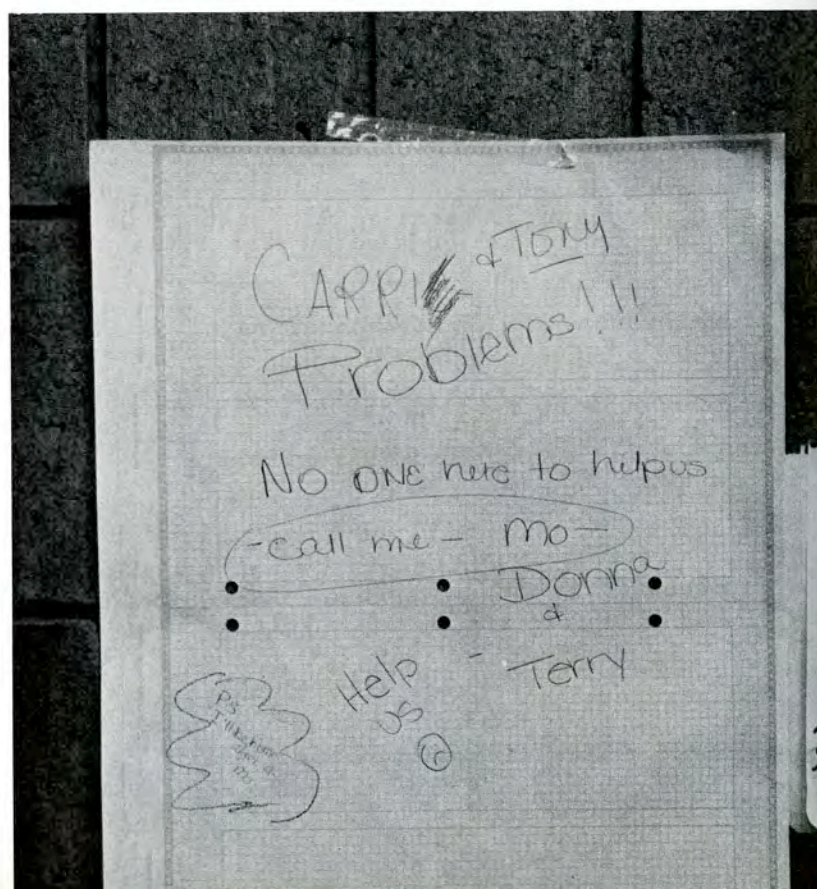 CARRIE & TONY
Problems!!!
No ONE here to help us
-call me - Mo-
Donna
&
- Terry
Help
us
P.S.